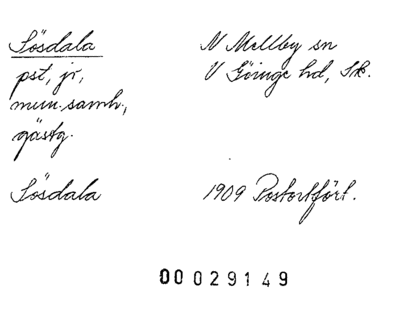 Sösdala N Mellby sn
pst, jr, V Göinge hd, Sk.
mun.samh.,
gästg.
Sösdala 1909 Postortfört.
00029149